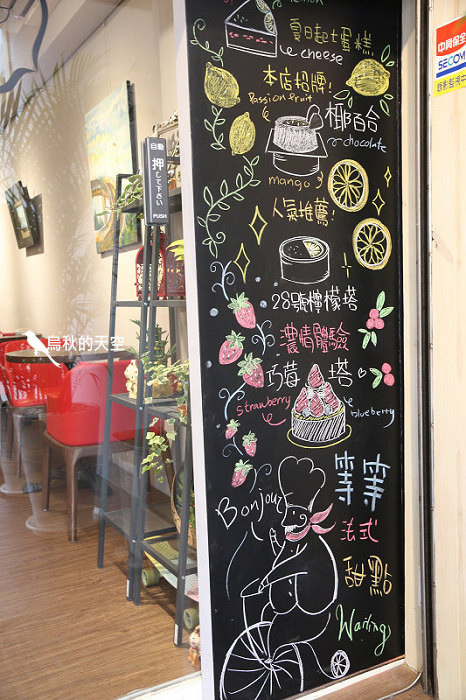 lemon
夏日起士蛋糕
cheese
本店招牌!
Passion fruit
椰百合
chocolate
mango
人氣推薦!
28號檸檬塔
濃情體驗
巧莓塔
strawberry
blueberry
等等
Bonjour
法式
甜點
Waiting
自動
押して下さい
PUSH
烏秋的天空
中興保全
SECOM